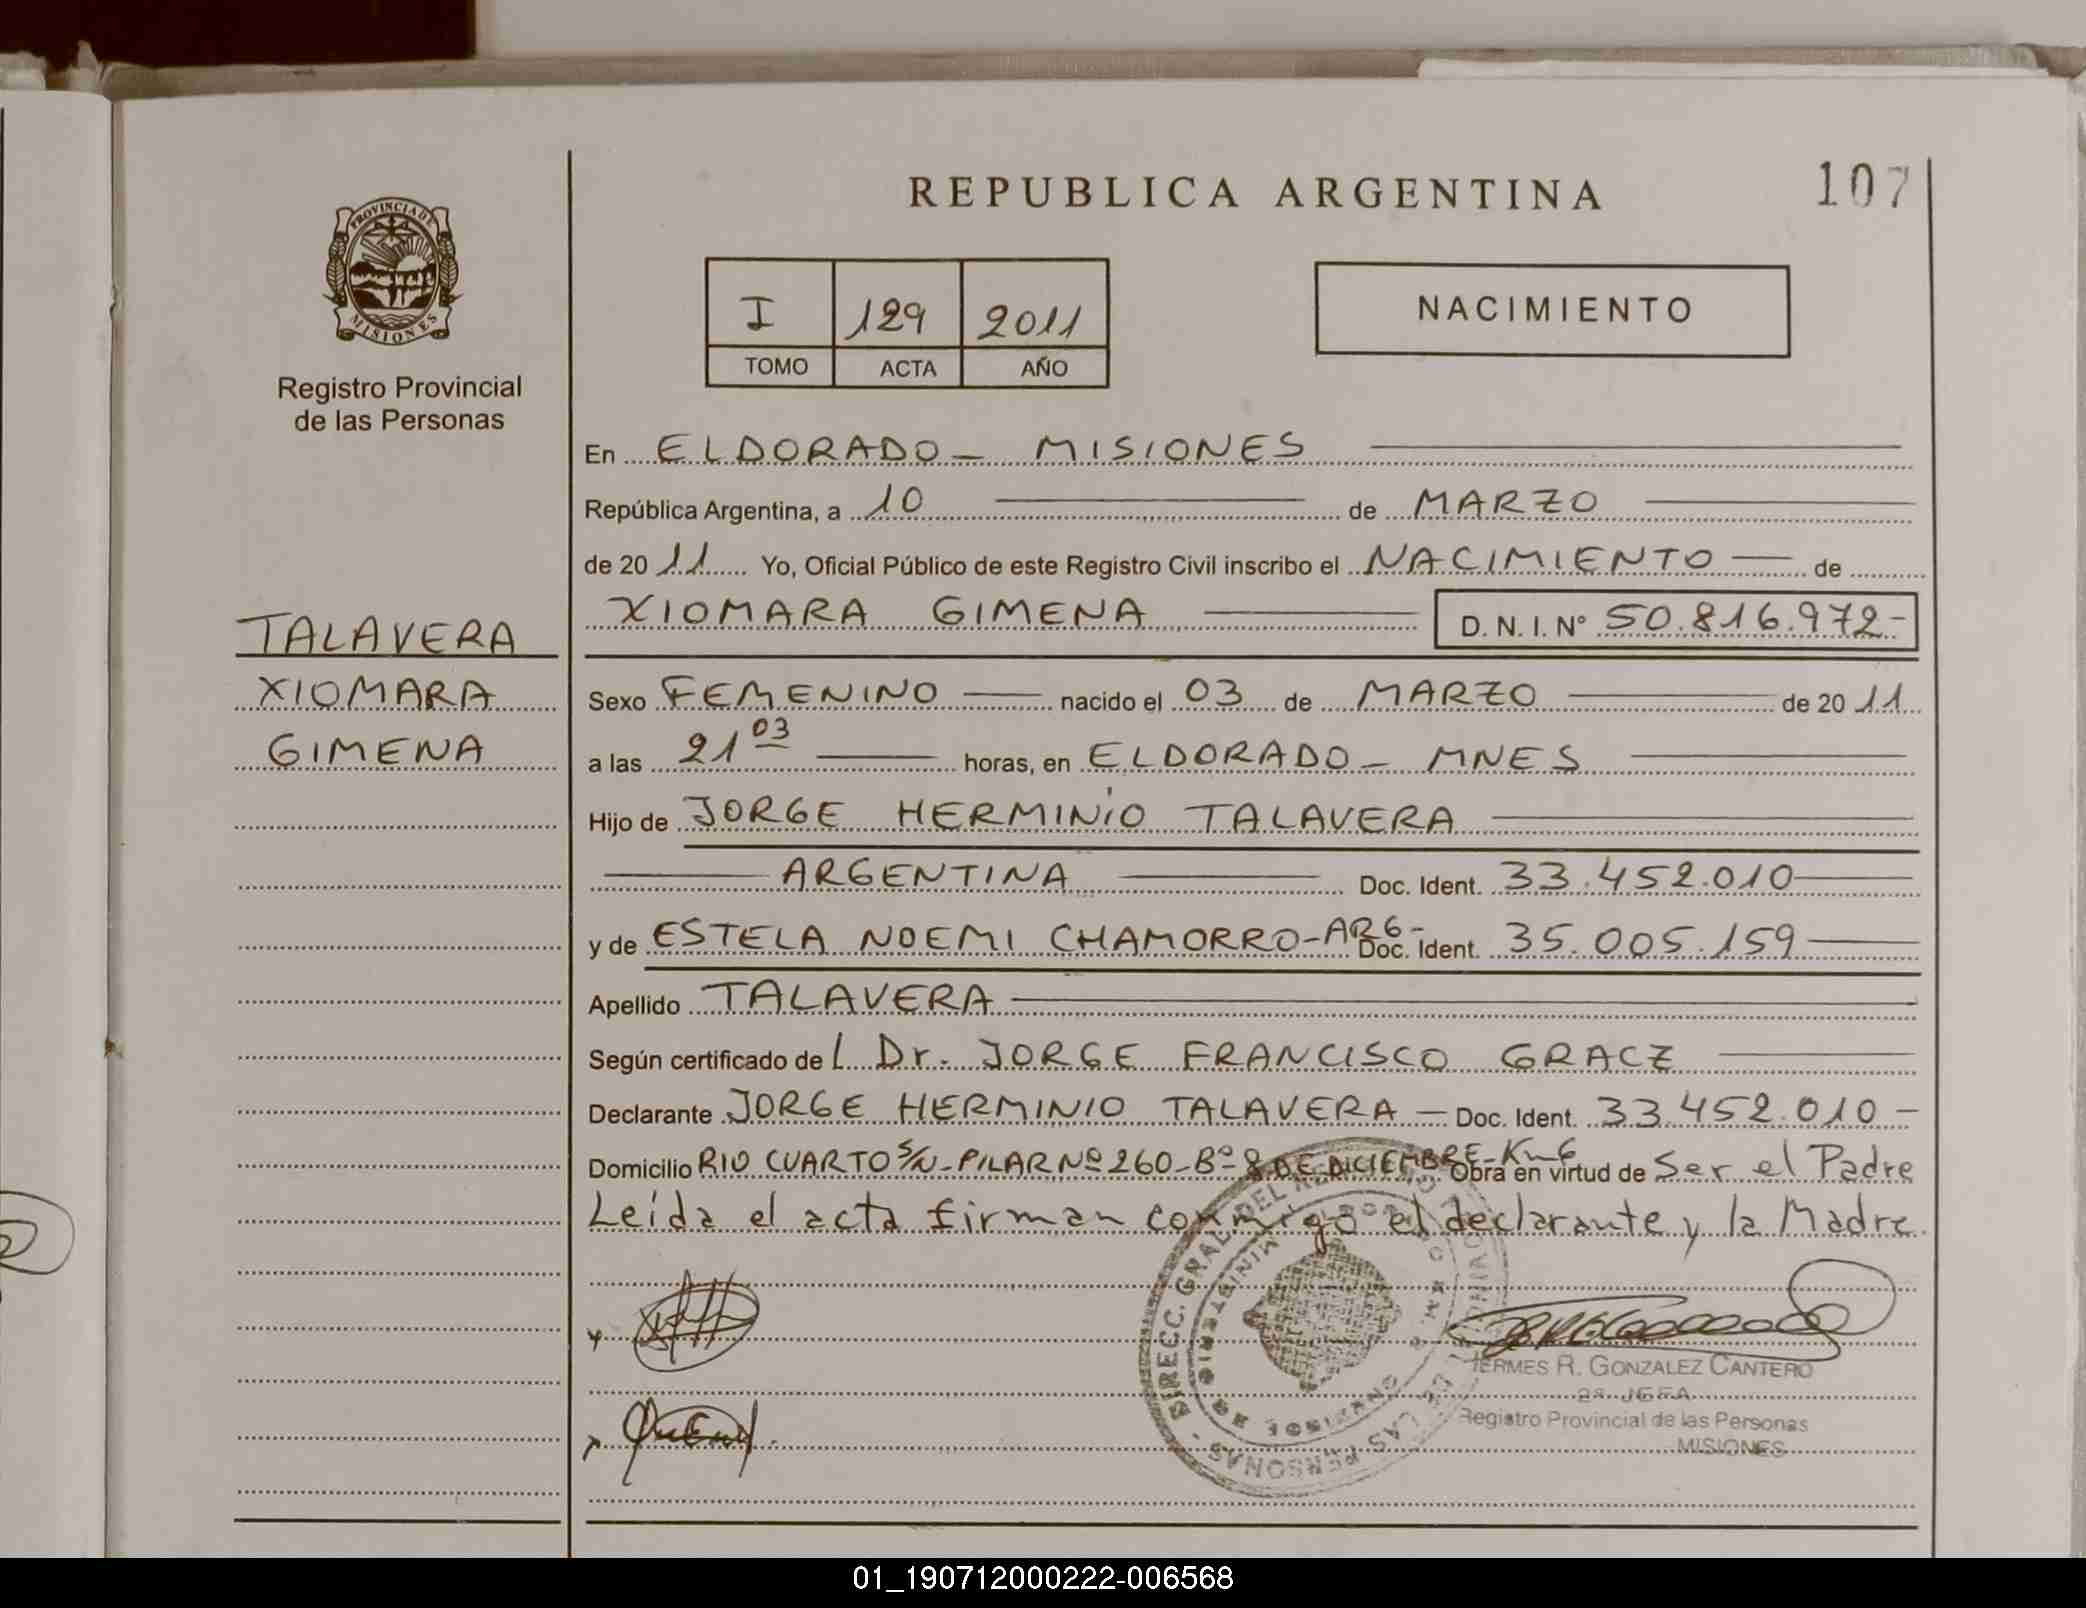 REPUBLICA ARGENTINA
107
PROVINCIA DE
MISIONES
Registro Provincial
de las Personas
I 129 2011
TOMO ACTA AÑO
NACIMIENTO
En ELDORADO - MISIONES
República Argentina, a 10 de MARZO
de 20 11 Yo, Oficial Público de este Registro Civil inscribo el NACIMIENTO de
XIOMARA GIMENA D. N. I. Nº 50.816.972-
TALAVERA
XIOMARA
GIMENA
Sexo FEMENINO nacido el 03 de MARZO de 20 11
a las 21 03 horas, en ELDORADO - MNES
Hijo de JORGE HERMINIO TALAVERA
ARGENTINA Doc. Ident. 33.452.010
y de ESTELA NOEMI CHAMORRO-ARG- Doc. Ident. 35.005.159
Apellido TALAVERA
Según certificado de L Dr. JORGE FRANCISCO GRACZ
Declarante JORGE HERMINIO TALAVERA - Doc. Ident. 33.452.010 -
Domicilio RIO CUARTO S/N-PILAR Nº 260-Bº 8 DE DICIEMBRE-Km 6 Obra en virtud de Ser el Padre
Leída el acta firman conmigo el declarante y la Madre.
DIRECC. GRAL. DEL
DE LAS PERSONAS
MINISTERIO DE
HERMES R. GONZALEZ CANTERO
2ª JEFA
Registro Provincial de las Personas
MISIONES
01_190712000222-006568